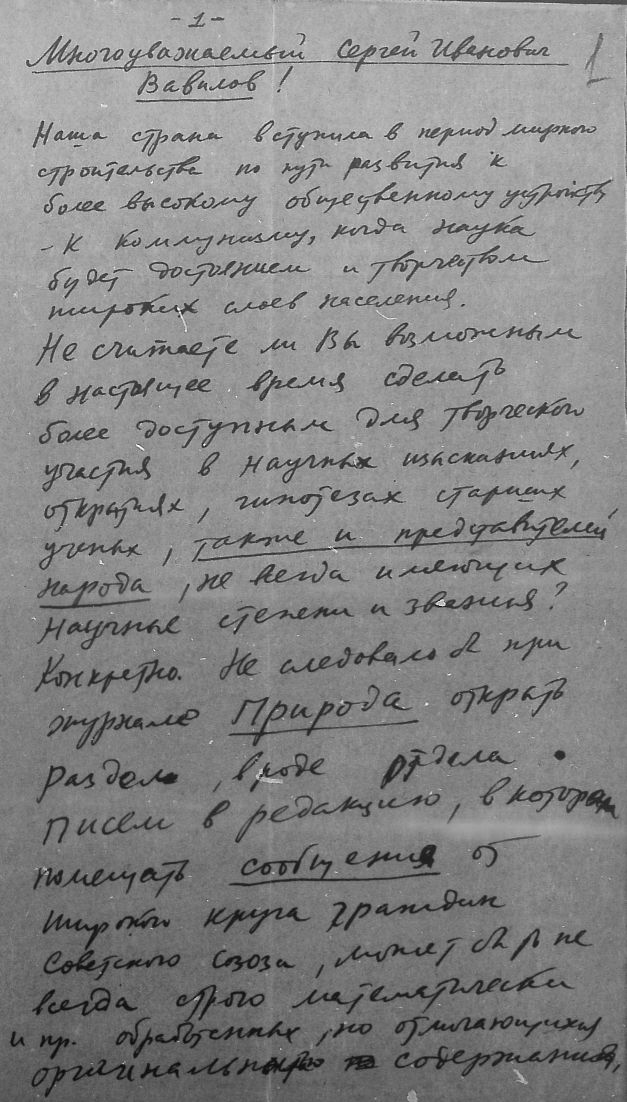 -1-
1
Многоуважаемый Сергей Иванович
Вавилов!
Наша страна вступила в период мирного
строительства по пути развития к
более высокому общественному устройству
- к коммунизму, когда наука
будет достоянием и творчеством
широких слоев населения.
Не считаете ли Вы возможным
в настоящее время сделать
более доступным для творческого
участия в научных изысканиях,
открытиях, гипотезах старших
ученых, также и представителей
народа, не всегда имеющих
научные степени и звания?
Конкретно. Не следовало б при
журнале Природа открыть
раздел, вроде отдела
писем в редакцию, в котором
помещать сообщения от
широкого круга граждан
Советского союза, может быть не
всегда строго математически
и пр. обработенных, но отличающихся
оригинальностью содержания,